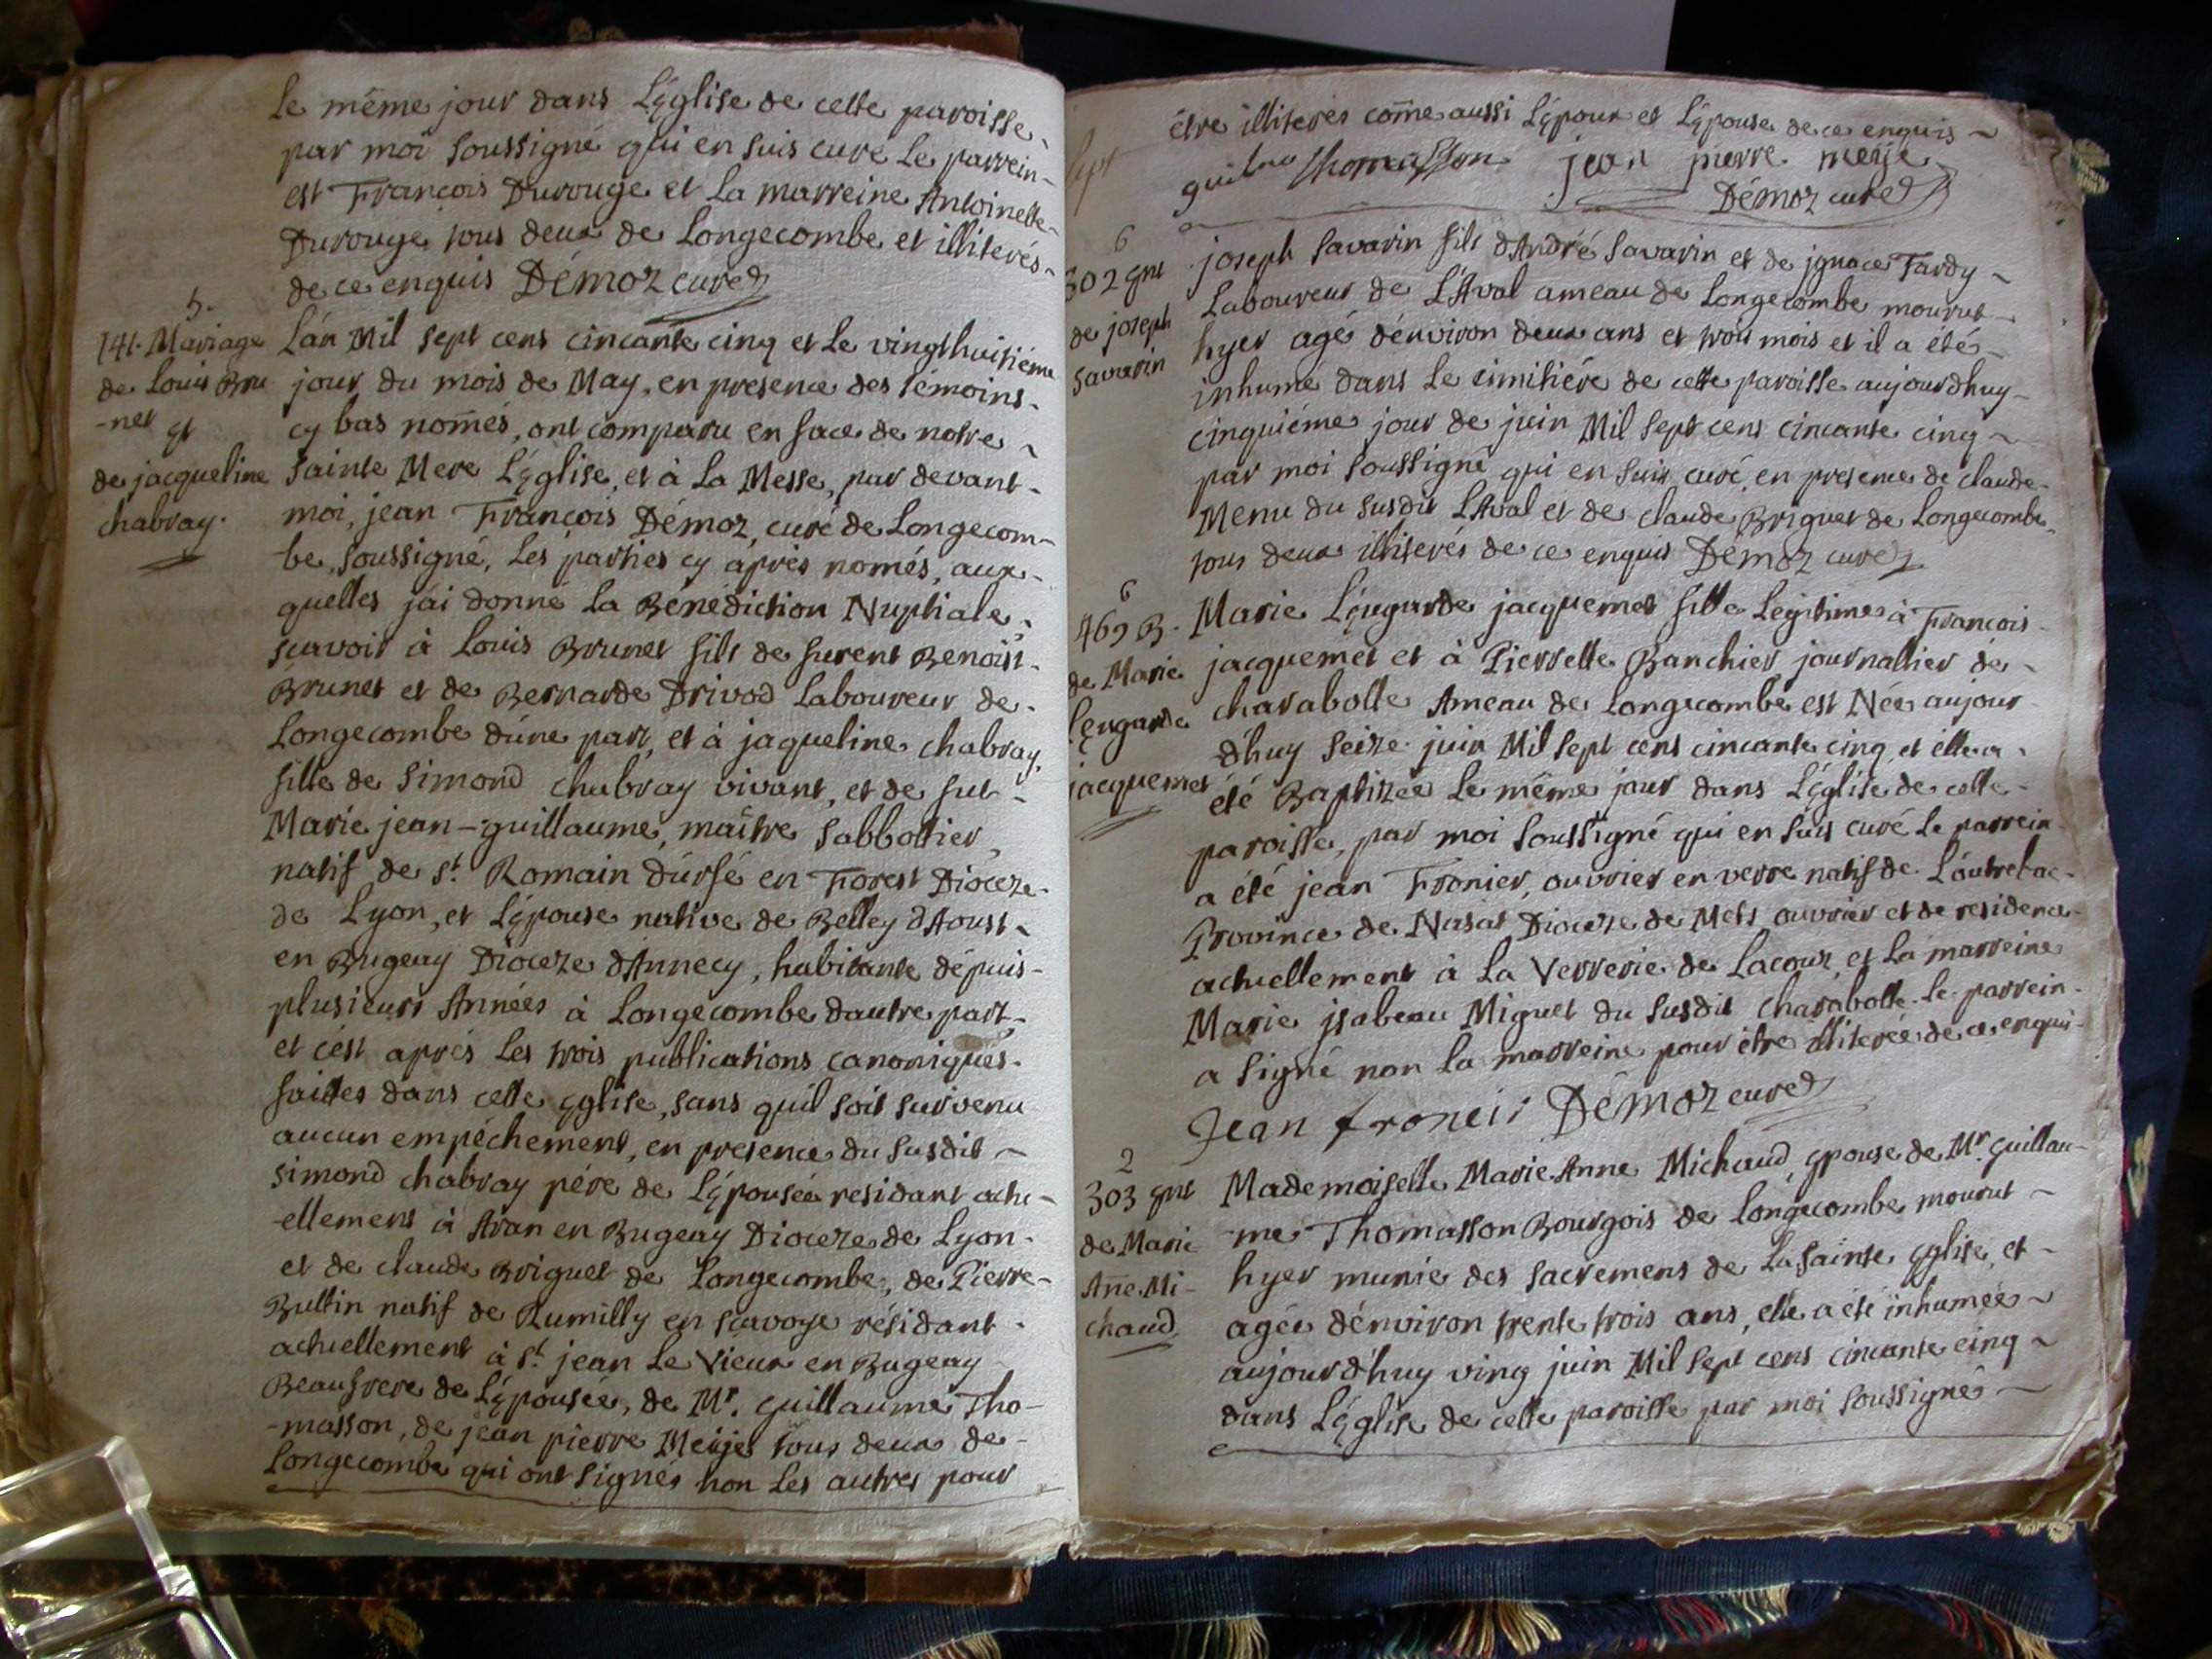 le même jour dans L'église de cette paroisse
par moi soussigné qui en suis curé Le parrein
est François Durouge et La marreine Antoinette
Durouge tous deux de Longecombe et illiterés
de ce enquis Démoz curé
5.
141. Mariage
de Louis Bru
-net et
de jacqueline
chabray.
L'an Mil sept cens cincante cinq et Le vingthuitiéme
jour du mois de May, en presence des témoins
cy bas només, ont comparu en face de notre
sainte Mere L'église, et à La Messe, par devant
moi, jean François Démoz, curé de Longecom-
be, soussigné, Les parties cy aprés només, aux
quelles j'ai donné La Bénédiction Nuptiale,
scavoir à Louis Brunet fils de furent Benoist
Brunet et de Bernarde Drivod Laboureur de
Longecombe d'une part, et à jaqueline chabray,
fille de Simond chabray vivant, et de fut
Marie jean-guillaume, maître sabbottier
natif de St. Romain d'urfé en Forest Dioceze
de Lyon, et L'épouse native de Belley d'Aoust
en Bugeay Dioceze d'Annecy, habitante dépuis
plusieurs Années à Longecombe d'autre part,
et c'ést aprés Les trois publications canoniques
faittes dans cette église, sans quil soit survenu
aucun empéchement, en presence du susdit
simond chabray pére de L'épousée residant actu-
-ellement à Aran en Bugeay Dioceze de Lyon
et de claude Briguet de Longecombe, de Pierre
Buttin natif de Rumilly en scavoye résidant
actuellement à St. jean Le Vieux en Bugeay
Beaufrere de L'épousée, de Mr. guillaume Tho-
-masson, de jean pierre Meije tous deux de
Longecombe qui ont signés non Les autres pour
étre illiterés come aussi L'époux et L'épouse de ce enquis
Thomasson jean pierre meije
Démoz curé
6
302 ent
de joseph
savarin
joseph Savarin fils d'André Savarin et de jgnace Tardy
Laboureur de L'Aval ameau de Longecombe mourut
hyer agé d'énviron deux ans et trois mois et il a été
inhumé dans Le cimitiére de cette paroisse aujourdhuy
cinquiéme jour de juin Mil sept cens cincante cinq
par moi soussigné qui en suis curé, en presence de claude
Menu du susdit L'Aval et de claude Briguet de Longecombe
tous deux illiterés de ce enquis Démoz curé
6
469 B.
de Marie
Léugarde
jacquemet
Marie Léugarde jacquemet fille Légitime à François
jacquemet et à Pierrette Banchier journallier de
charabotte Ameau de Longecombe est Née aujour
d'huy seize juin Mil sept cens cincante cinq, et elle a
été Baptizée Le même jour dans L'église de cette
paroisse, par moi soussigné qui en suis curé Le parrein
a été jean Fronier, ouvrier en verre natif de
Province de Nasat Dioceze de Mets ouvrier et de residence
actuellement à La Verrerie de Lacoux et La marreine
Marie jsabeau Miguet du susdit charabotte. Le parrein
a signé non La marreine pour étre illiterée de ce enqui
Jean froneir Démoz curé
2
303 ent
de Marie
Añe Mi-
chaud
Mademoiselle Marie Anne Michaud, épouse de Mr. guillau-
me Thomasson Bourgois de Longecombe mourut
hyer munie des sacremens de La sainte église, et
agée d'énviron trente trois ans, elle a été inhumée
aujourd'huy ving juin Mil sept cens cincante cinq
dans L'église de cette paroisse par moi soussigné